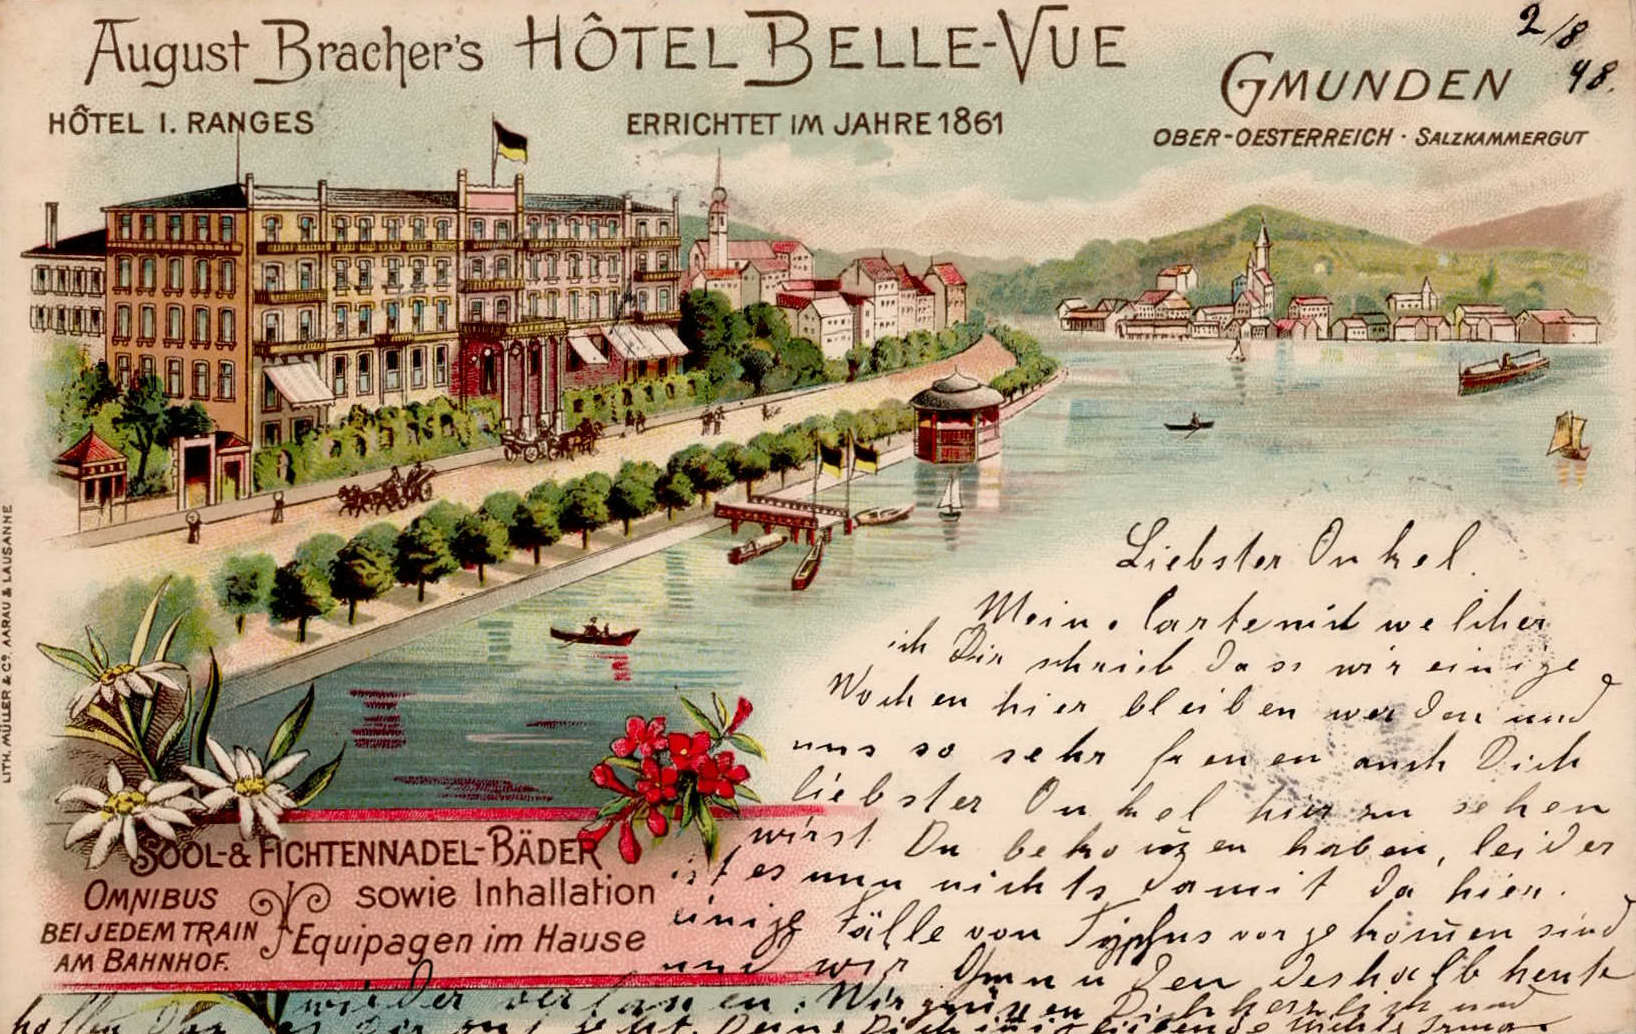 August Bracher's HÔTEL BELLE-VUE
HÔTEL I. RANGES
ERRICHTET IM JAHRE 1861
GMUNDEN
OBER-OESTERREICH · SALZKAMMERGUT
2/8
98.
LITH. MÜLLER & Cº. AARAU & LAUSANNE
SOOL-& FICHTENNADEL-BÄDER
OMNIBUS
BEI JEDEM TRAIN
AM BAHNHOF.
sowie Inhallation
Equipagen im Hause
Liebster Onkel
Meine Carte mit welcher
ich Dir schrieb dass wir einige
Wochen hier bleiben werden und
uns so sehr freuen auch Dich
liebster Onkel hier zu sehen
wirst Du bekom̄en haben, leider
ist es nun nichts damit da hier
einige Fälle von Typhus vorgekom̄en sind
und wir Gmunden deshalb heute
wieder verlassen. Wir grüssen Dich herzlich und
hoffen dass es Dir gut geht. Deine Dich innig liebende Nichte Irma